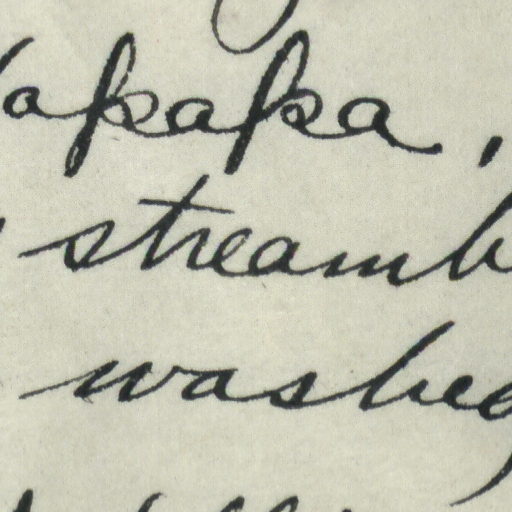 apapa,
streamb
washe